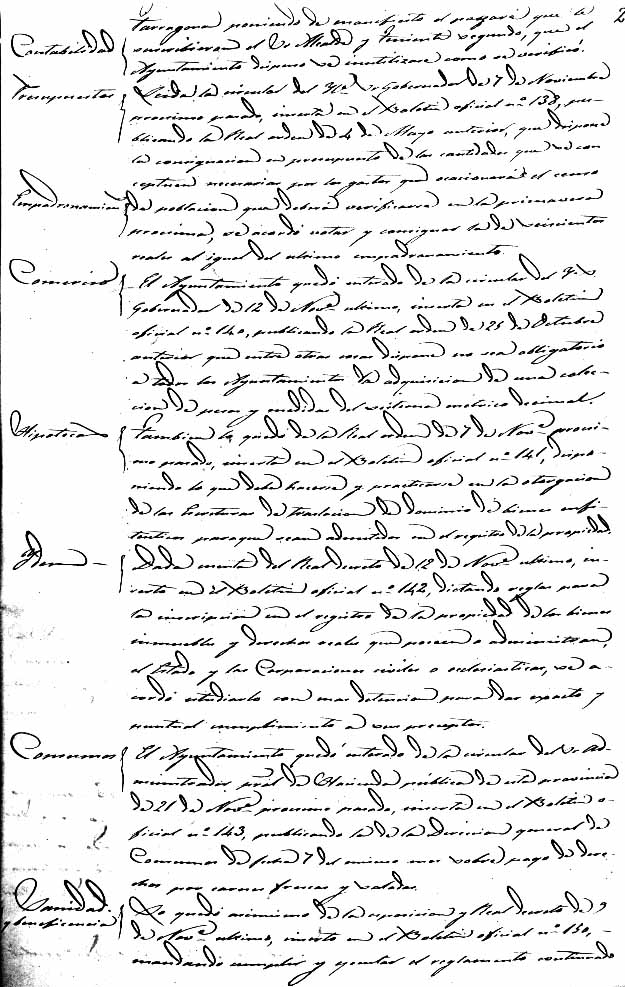 2
Tarragona poniendo de manifiesto el pagaré que le
Contabilidad suscribieran el Sr Alcalde y Teniente segundo, que el
Ayuntamiento dispuso se inutilizase como se verificó.
Presupuestos Leida la circular del M.I. Sr Gobernador de 7 de Noviembre
procsimo pasado, inserta en el Boletin oficial nº 138, pu-
blicando la Real orden de 4 de Mayo anterior, que dispone
la consignacion en presupuesto de las cantidades que se con
ceptuen necesarias por los gastos que ocasionará el censo
Empadronamiento de poblacion que deberá verificarse en la primavera
procsima, se acordó votar y consignar la de seiscientos
reales al igual del ultimo empadronamiento.
Comercio El Ayuntamiento quedó enterado de la circular del Sr
Gobernador de 12 de Novᵉ ultimo, inserta en el Boletin
oficial nº 140, publicando la Real orden de 25 de Octubre
anterior que entre otras cosas dispone no sea obligatorio
a todos los Ayuntamientos la adquisicion de una colec-
cion de pesas y medidas del sistema métrico decimal.
Hipotecas Tambien lo quedó de la Real orden de 7 de Novᵉ procsi-
mo pasado, inserta en el Boletin oficial nº 141, dispo-
niendo lo que debe hacerse y practicarse en la otorgacion
de las Escrituras de traslacion de dominio de bienes enfi-
teuticos para que sean admitidas en el registro de la propiedad.
Ydem — Dada cuenta del Real decreto de 12 de Novᵉ ultimo, in-
serto en el Boletin oficial nº 142, dictando reglas para
la inscripcion en el registro de la propiedad de los bienes
inmuebles y derechos reales que poseen o administran,
el Estado y las Corporaciones civiles o eclesiasticas, se a-
cordó estudiarlo con mas detencion para dar exacto y
puntual cumplimiento a sus preceptos.
Consumos El Ayuntamiento quedó enterado de la circular del Sr Ad-
ministrador pral de Hacienda pública de esta provincia
de 21 de Novᵉ procsimo pasado, inserta en el Boletin o-
ficial nº 143, publicando la de la Direccion general de
Consumos de fecha 7 del mismo mes sobre pago de dere-
chos por carnes frescas y saladas.
Sanidad y beneficencia Lo quedó asimismo de la esposicion y Real decreto de 9
de Novᵉ ultimo, inserto en el Boletin oficial nº 150,
mandando cumplir y ejecutar el reglamento continuado